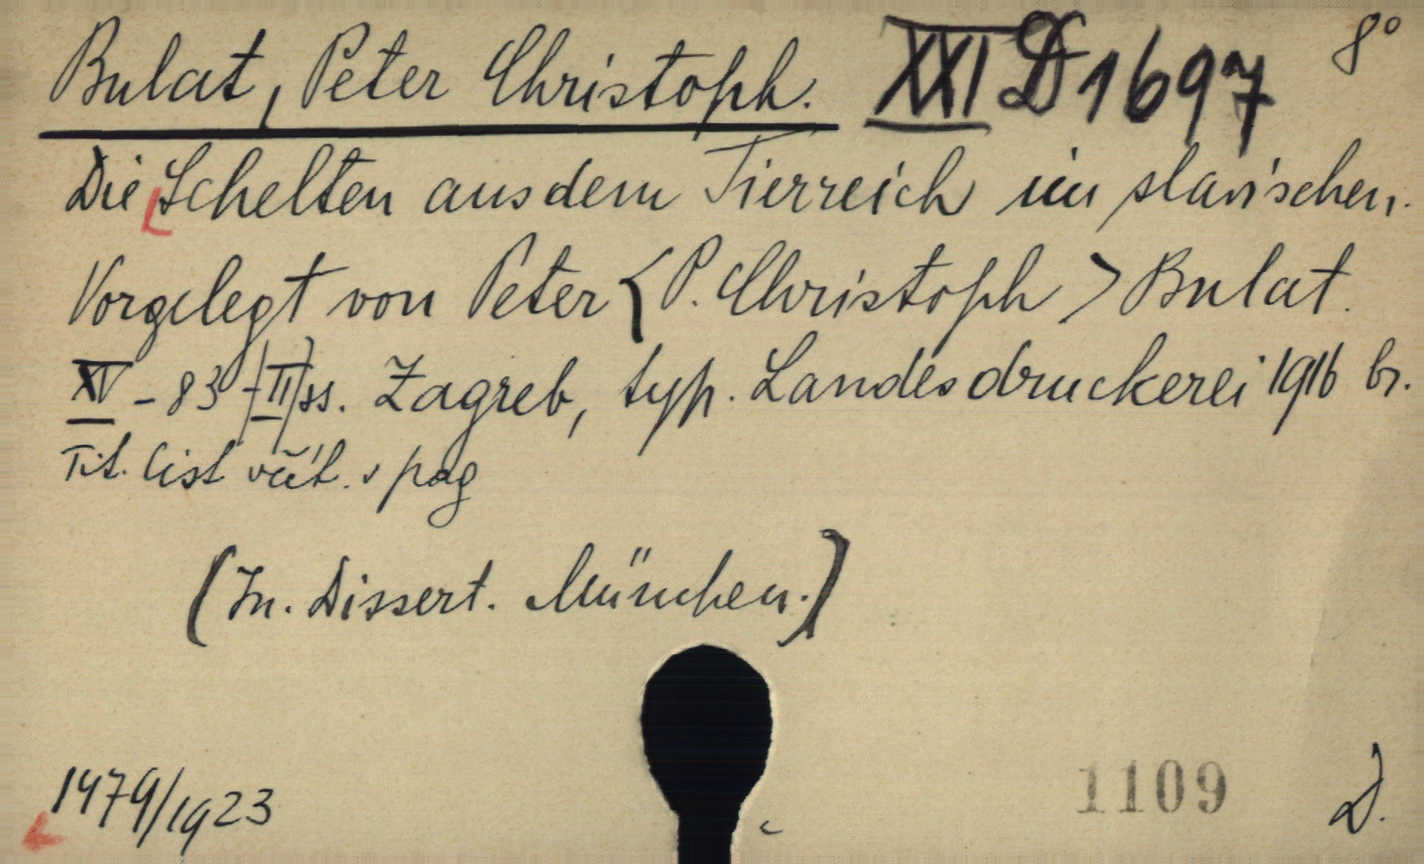 Bulat, Peter Christoph. XXI D 1697 8°
Die Schelten aus dem Tierreich im slavischen.
Vorgelegt von Peter < P. Christoph > Bulat.
XV - 83 + (II) ss. Zagreb, typ. Landesdruckerei 1916 br.
Tit. list včít. v pag
(In. Dissert. München.)
1479/1923
1109
D.